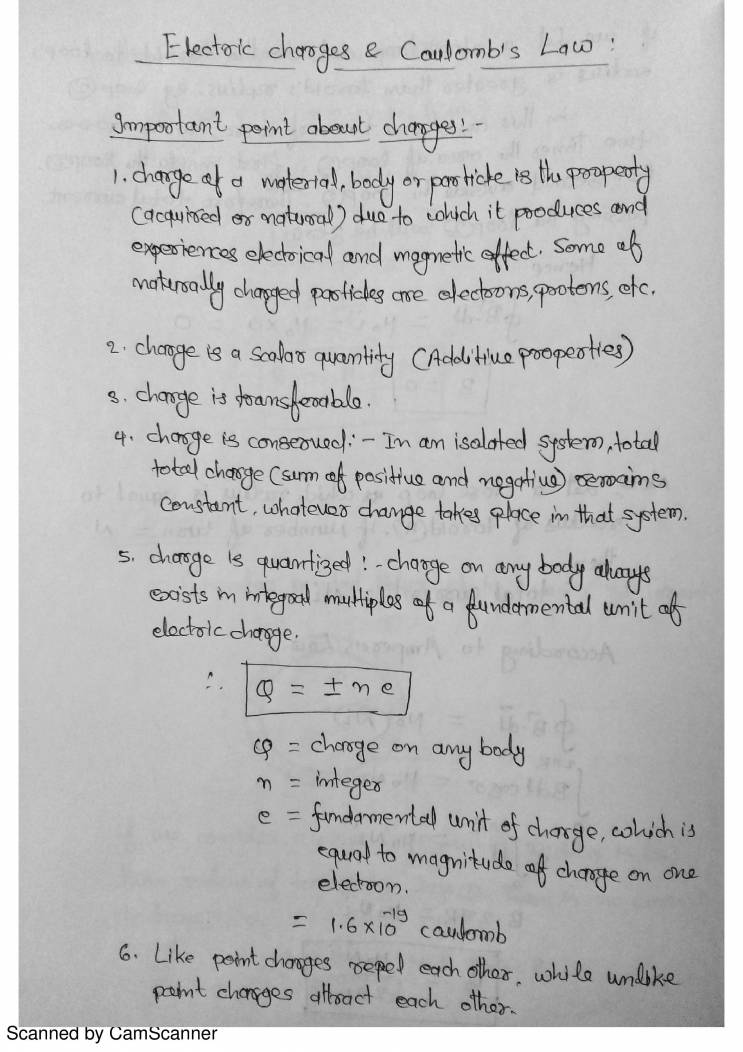 Electric charges & Coulomb's Law :
Important point about charges: -
1. charge of a material, body or particle is the property
(acquired or natural) due to which it produces and
experiences electrical and magnetic effect. Some of
naturally charged particles are electrons, protons, etc.
2. charge is a scalar quantity (Additive properties)
3. charge is transferable.
4. charge is conserved: - In an isolated system, total
total charge (sum of positive and negative) remains
constant, whatever change takes place in that system.
5. charge is quantized : - charge on any body always
exists in integral multiples of a fundamental unit of
electric charge.
∴ Q = ± n e
Q = charge on any body
n = integer
e = fundamental unit of charge, which is
equal to magnitude of charge on one
electron.
= 1.6 × 10⁻¹⁹ coulomb
6. Like point charges repel each other, while unlike
point charges attract each other.
Scanned by CamScanner